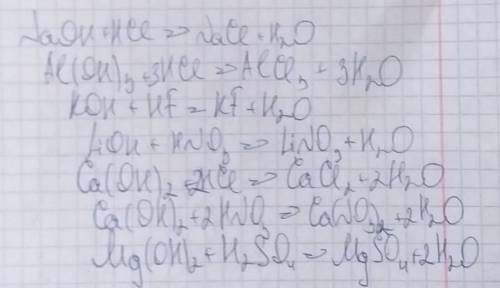 NaOH + HCl => NaCl + H₂O
Al(OH)₃ + 3HCl => AlCl₃ + 3H₂O
KOH + Hf = Kf + H₂O
LiOH + HNO₃ => LiNO₃ + H₂O
Ca(OH)₂ + 2HCl => CaCl₂ + 2H₂O
Ca(OH)₂ + 2HNO₃ => Ca(NO₃)₂ + 2H₂O
Mg(OH)₂ + H₂SO₄ => MgSO₄ + 2H₂O